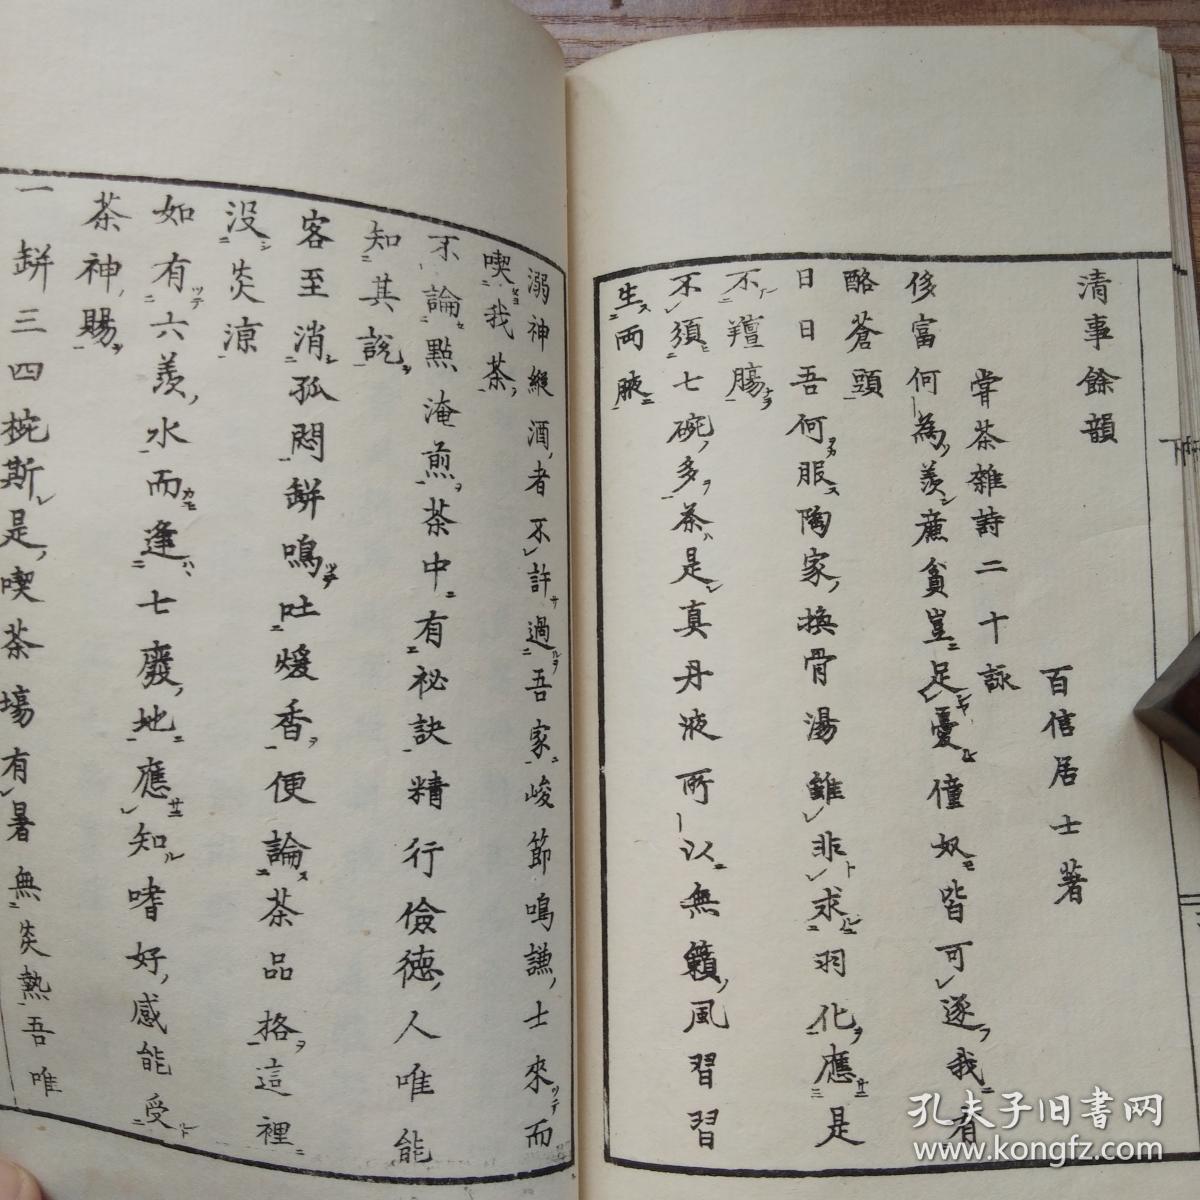 清事餘韻
百信居士著
嘗茶雜詩二十詠
侈富何為羨廉貧豈足憂僮奴皆可逐我有
酪蒼頭
日日吾何服陶家換骨湯雖非求羽化應是
不羶腸
不須七碗多茶是真丹液所以無籟風習習
生両腋
溺神縱酒者不許過吾家峻節鳴謙士來而
喫我茶
不論點淹煎茶中有祕訣精行儉德人唯能
知其説
客至消孤悶缾鳴吐煖香便論茶品格這裡
没炎凉
如有六羨水而逢七廢地應知嗜好感能受
茶神賜
一缾三四椀斯是喫茶塲有暑無炎熱吾唯
孔夫子旧书网
www.kongfz.com